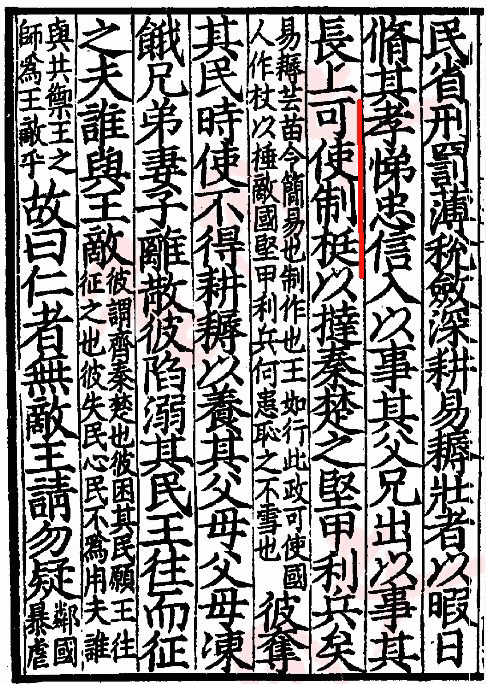 民省刑罰薄稅斂深耕易耨壯者以暇日
脩其孝悌忠信入以事其父兄出以事其
長上可使制梃以撻秦楚之堅甲利兵矣
易耨芸苗令簡易也制作也王如行此政可使國
人作杖以捶敵國堅甲利兵何患恥之不雪也
彼奪
其民時使不得耕耨以養其父母父母凍
餓兄弟妻子離散彼陷溺其民王往而征
之夫誰與王敵
彼謂齊秦楚也彼困其民願王往
征之也彼失民心民不爲用夫誰
與共禦王之
師爲王敵乎
故曰仁者無敵王請勿疑
鄰國
暴虐